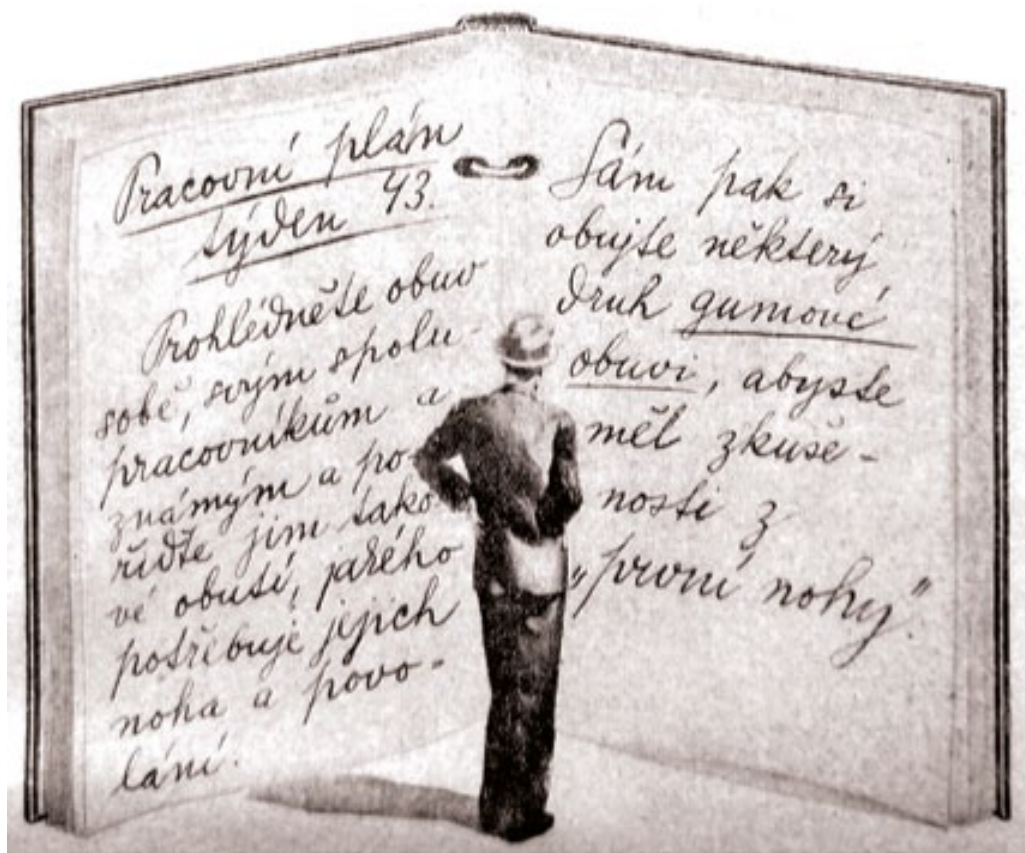 Pracovní plán
týden 43.
Prohlédněte obuv
sobě, svým spolu-
pracovníkům a
známým a po-
řiďte jim tako-
vé obutí, jakého
potřebuje jejich
noha a povo-
lání.
Sám pak si
obujte některý
druh gumové
obuvi, abyste
měl zkuše-
nosti z
„první nohy“.